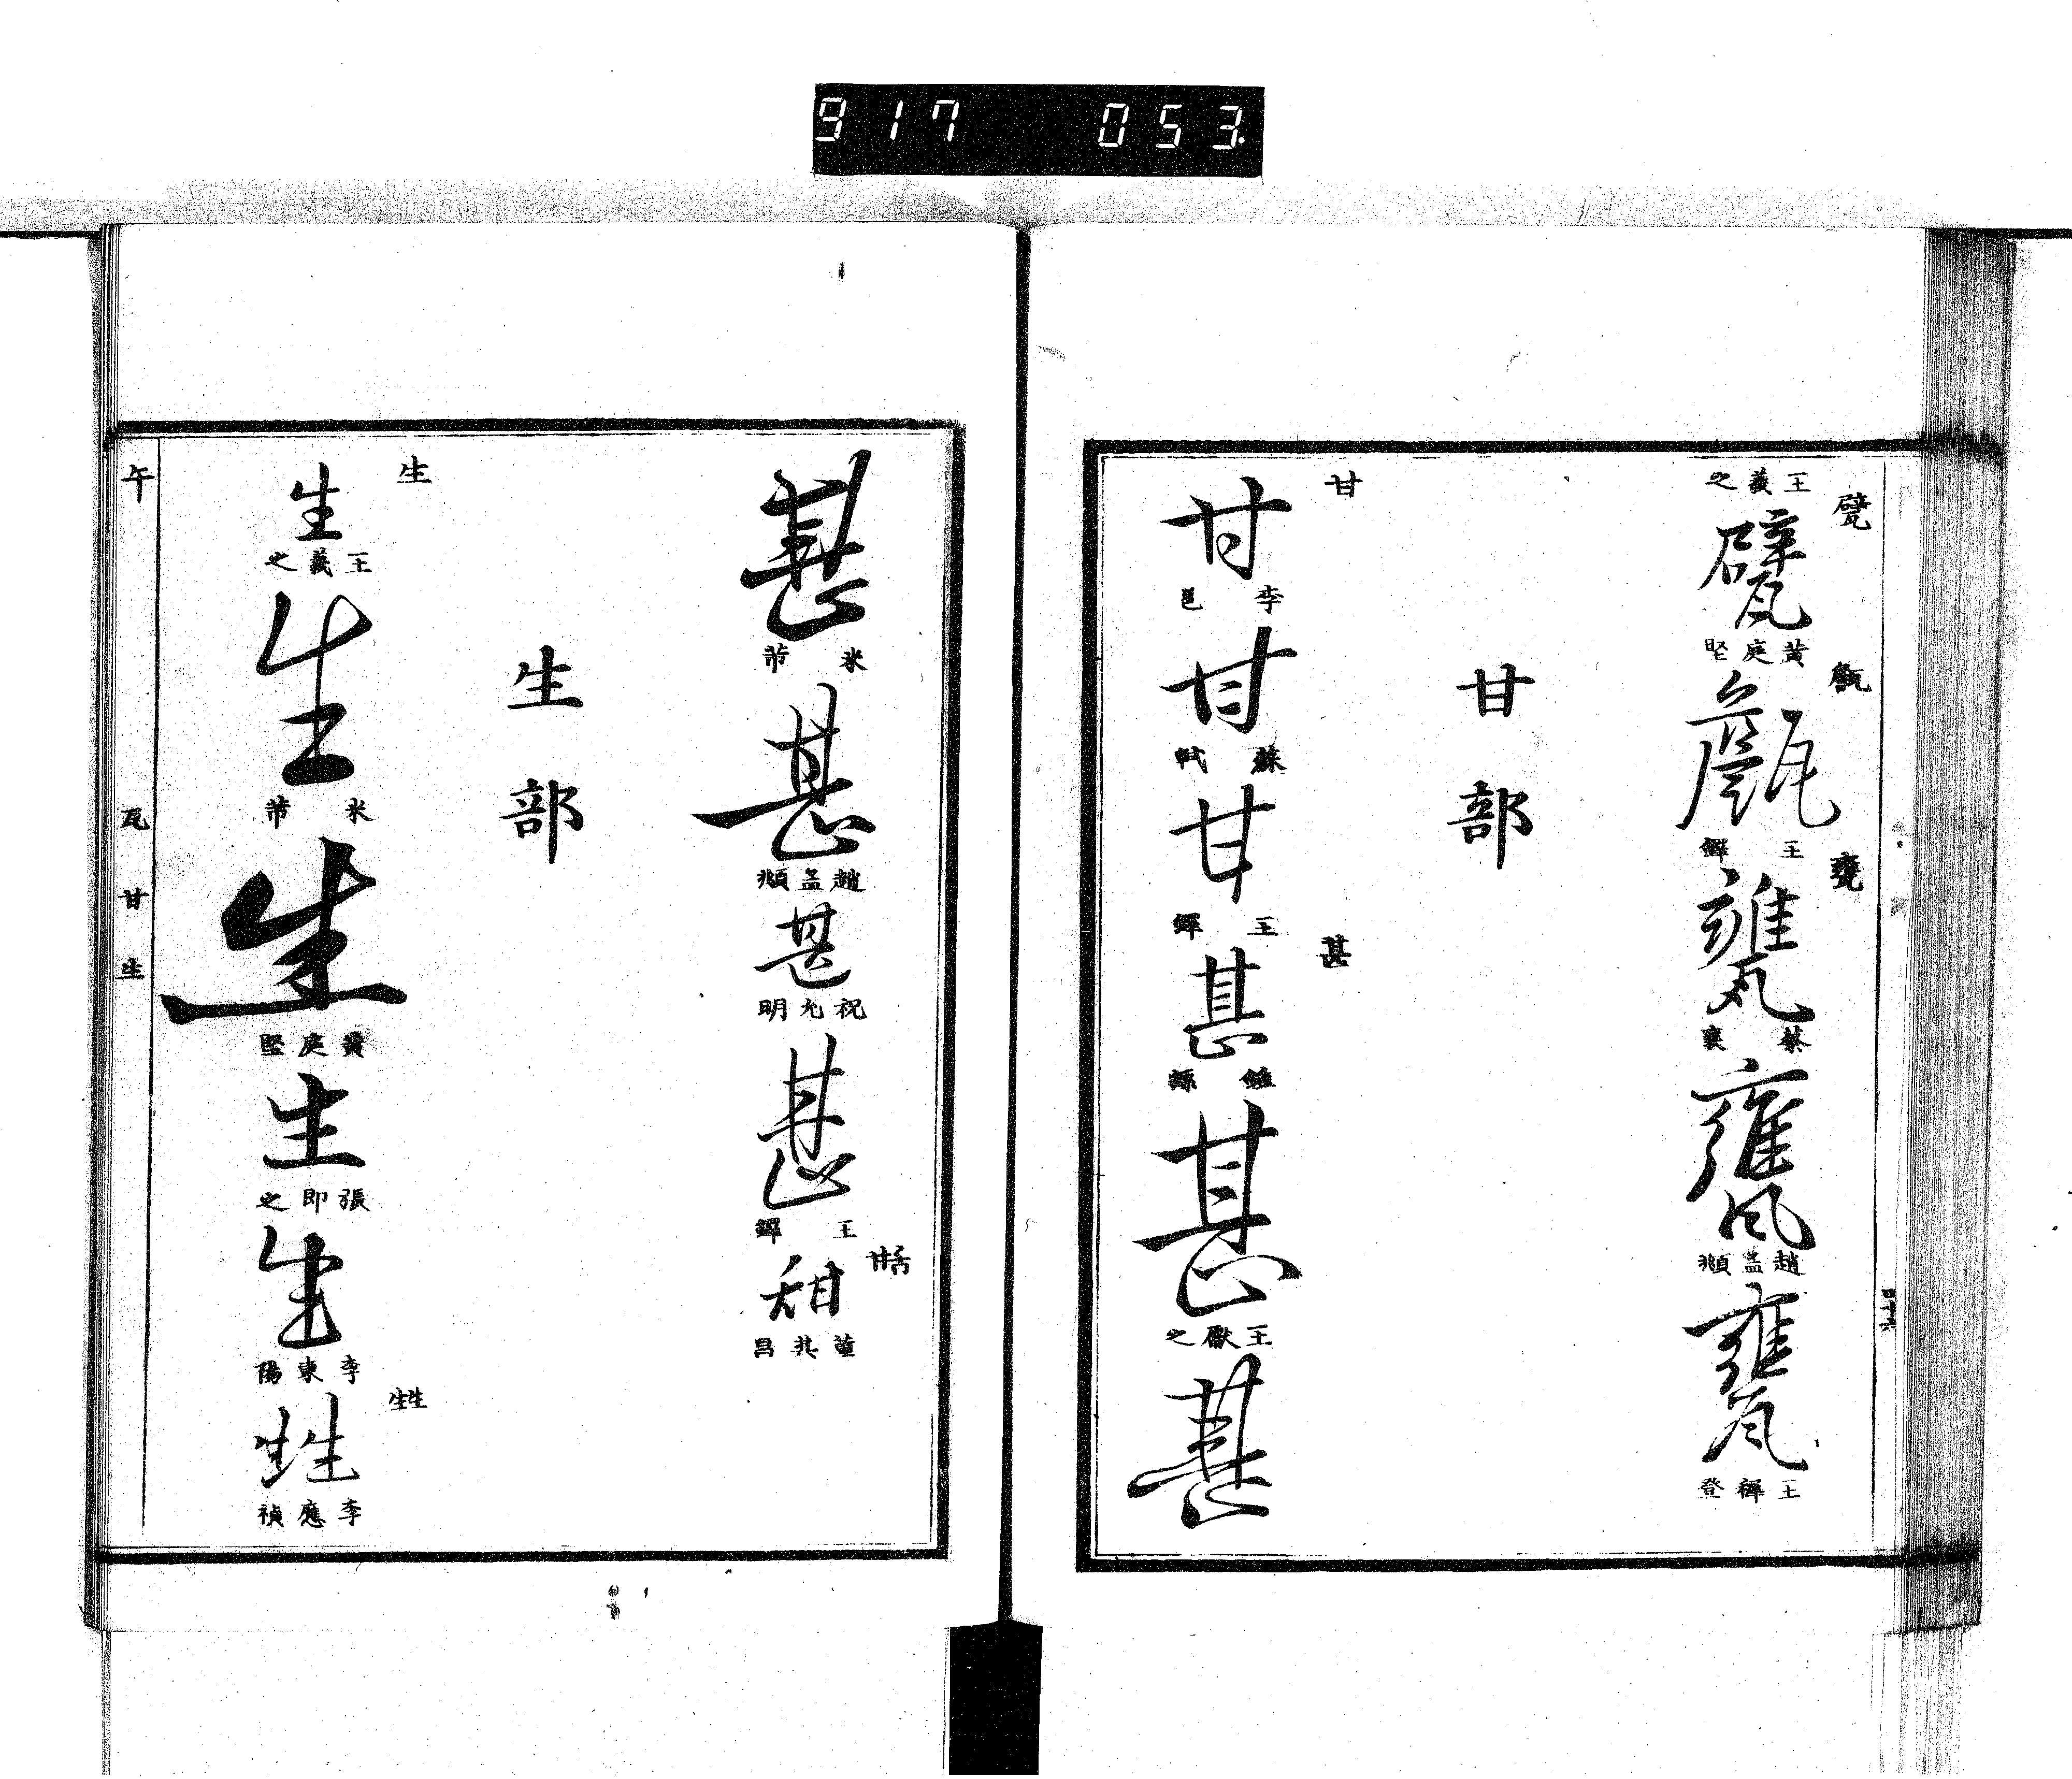 917 053
甓 甔 甕
王羲之
甓
黃庭堅
甔
王鐸
甕
蔡襄
甕
趙孟頫
甕
王穉登
甘部
甘 甚
甘
李邕
甘
蘇軾
甘
王鐸
甚
鍾繇
甚
王獻之
甚
甚
米芾
甚
趙孟頫
甚
祝允明
甚
王鐸
甜
甜
董其昌
生部
生 甡
生
王羲之
生
米芾
生
黃庭堅
生
張即之
生
李東陽
甡
李應禎
午 瓦 甘 生